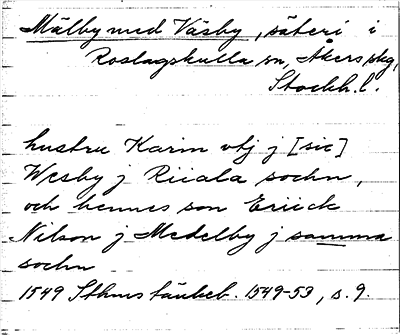 Mälby med Väsby, säteri i
Roslagskulla sn, Åkers skg,
Stockh. l.
hustru Karin vtj j [sic]
Wesby j Riiala sochn,
och hennes son Eriick
Nilson j Medelby j samma
sochn
1549 Sthms tänkeb. 1549-53, s. 9.